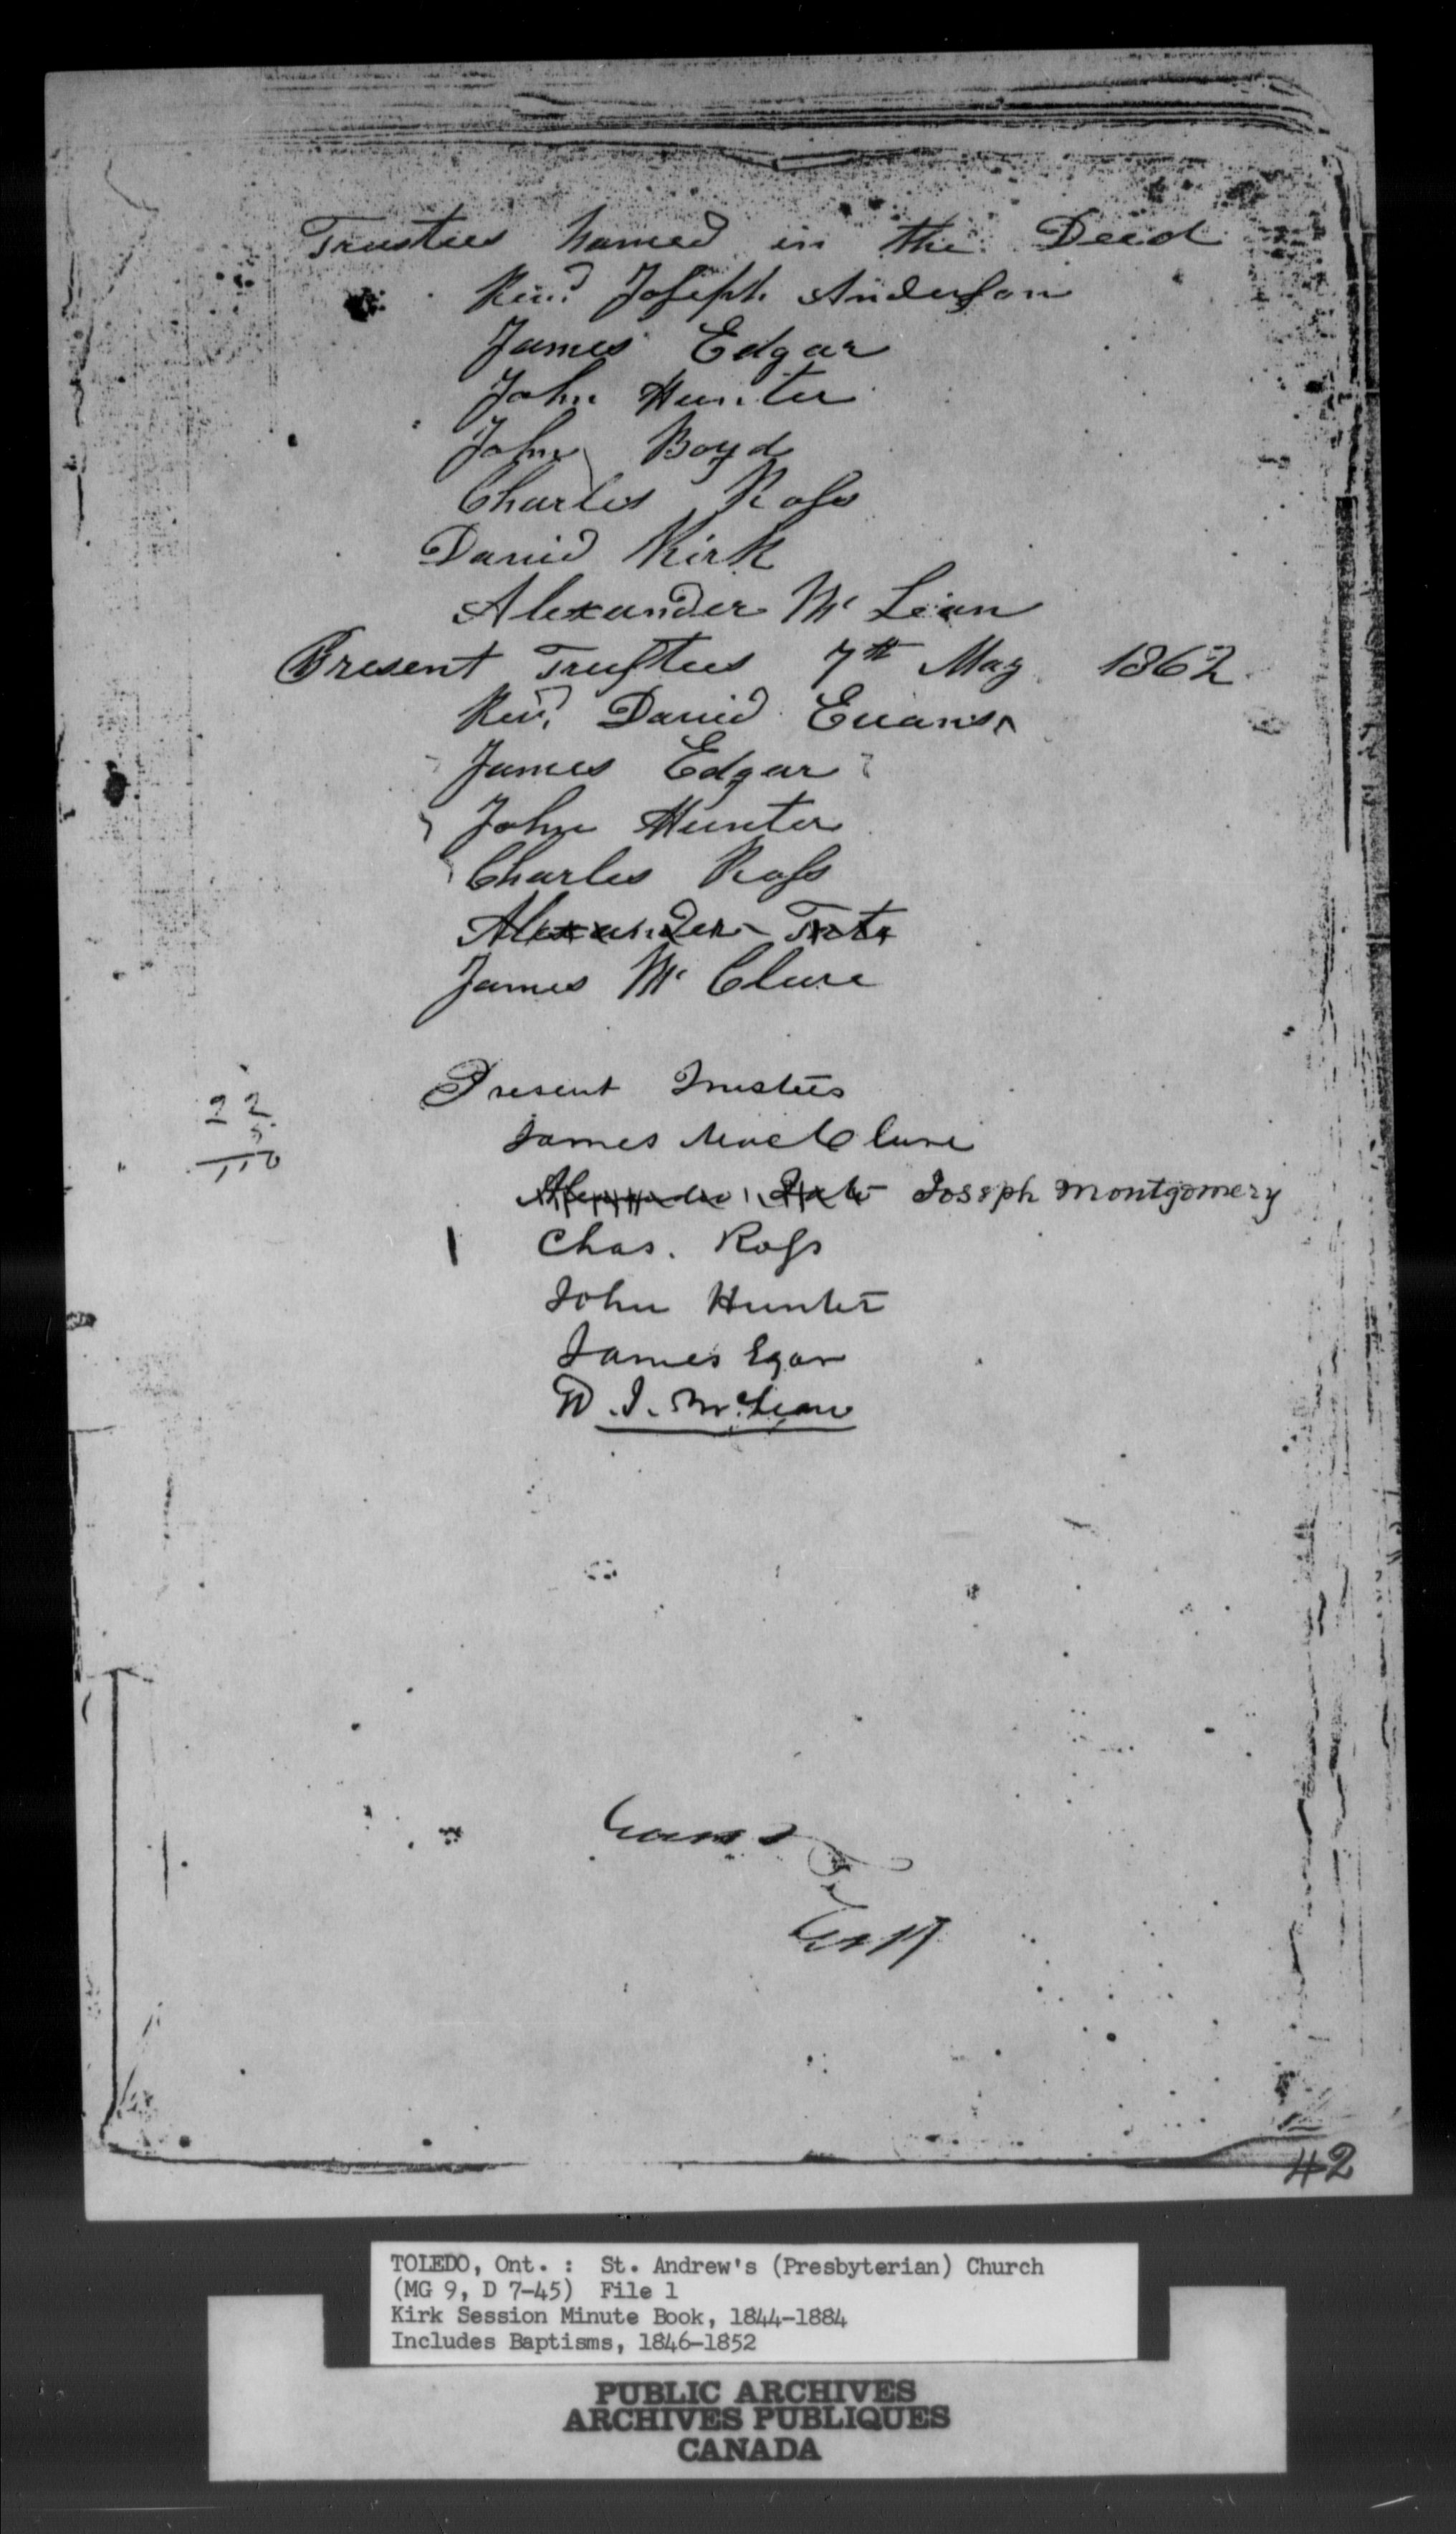 Trustees named in the Deed
Revd Joseph Anderson
James Edgar
John Hunter
John Boyd
Charles Ross
David Kirk
Alexander Mc Lean
Present Trustees 7th May 1862
Revd David Evans
James Edgar
John Hunter
Charles Ross
Alexander Tate
James Mc Clure
Present Trustees
James MacClure
Alexander Tate Joseph Montgomery
Chas. Ross
John Hunter
James Egar
W. J. McLean
22
5
110
42
TOLEDO, Ont. : St. Andrew's (Presbyterian) Church
(MG 9, D 7-45) File 1
Kirk Session Minute Book, 1844-1884
Includes Baptisms, 1846-1852
PUBLIC ARCHIVES
ARCHIVES PUBLIQUES
CANADA